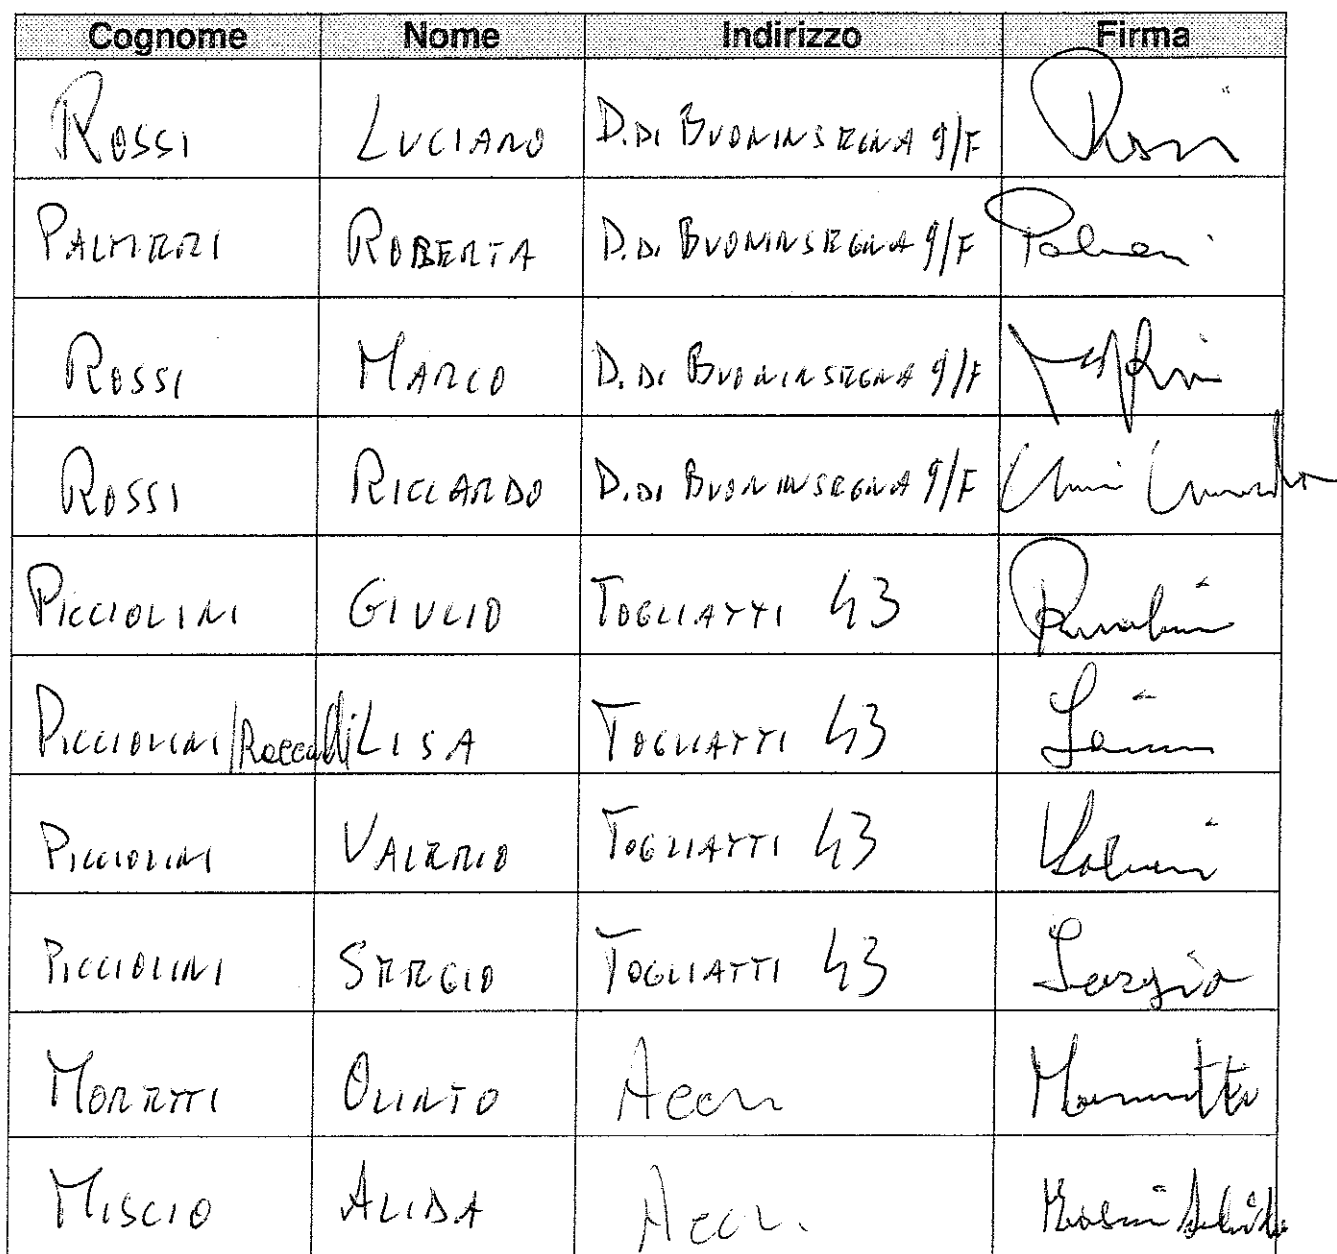 Cognome Nome Indirizzo Firma
ROSSI LUCIANO D. DI BUONINSEGNA 9/F Rossi
PALMIERI ROBERTA D. DI BUONINSEGNA 9/F
ROSSI MARCO D. DI BUONINSEGNA 9/F
ROSSI RICCARDO D. DI BUONINSEGNA 9/F
PICCIOLINI GIULIO TOGLIATTI 43
PICCIOLINI/Roccalli LISA TOGLIATTI 43
PICCIOLINI VALERIO TOGLIATTI 43
PICCIOLINI SERGIO TOGLIATTI 43 Sergio
MORETTI OLINTO
MISCIO ALIDA